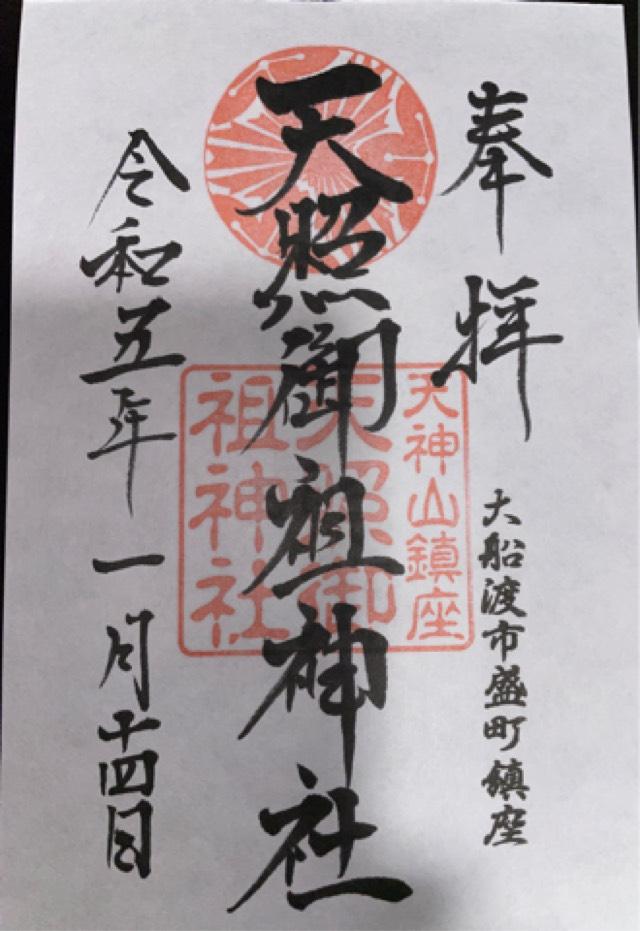 奉拝
大船渡市盛町鎮座
天照御祖神社
天神山鎮座
天照御
祖神社
令和五年一月十四日